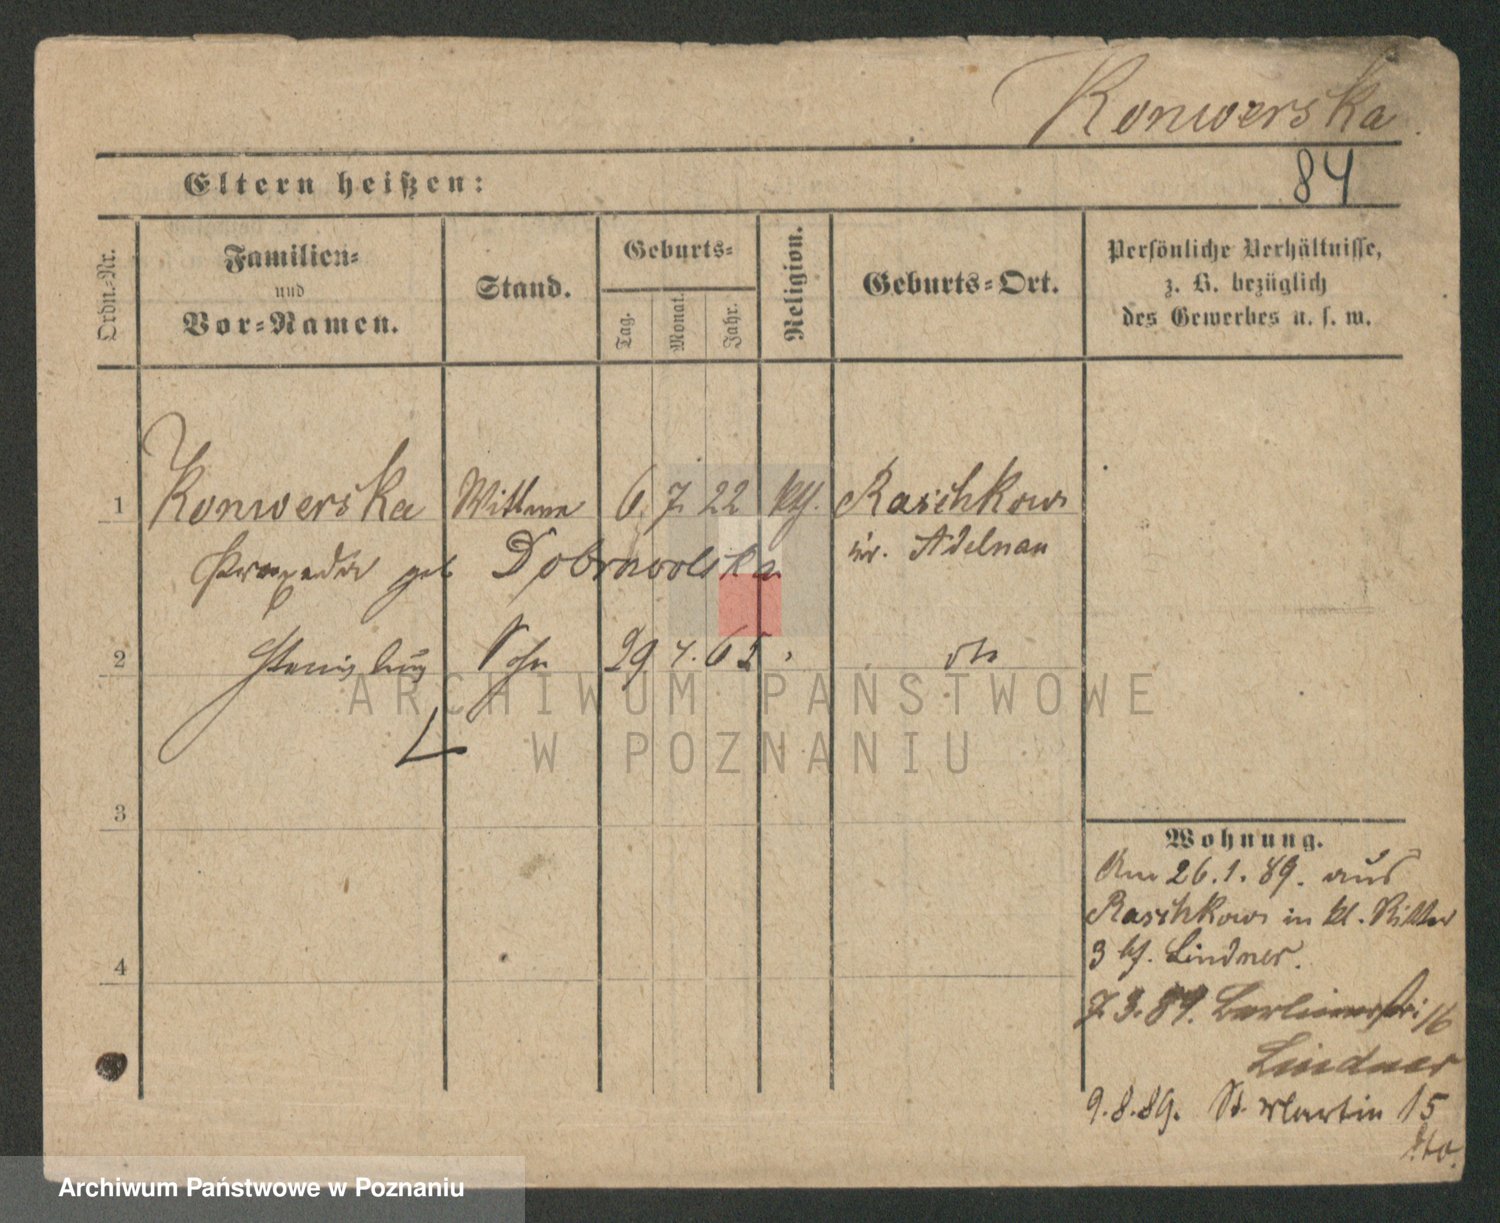 Konwerska
84
Eltern heißen:
Ordn.-Nr.
Familien-
und
Vor-Namen.
Stand.
Geburts-
Tag.
Monat.
Jahr.
Religion.
Geburts-Ort.
Persönliche Verhältnisse,
z. B. bezüglich
des Gewerbes u. s. w.
1 Konwerska Wittwe 6 7. 22 kth. Raschkow
Praxeda geb Dobrowolska Kr. Adelnau
2 Sohn 29 4. 65 " dto
ARCHIWUM PAŃSTWOWE
W POZNANIU
3
4
Wohnung.
Am 26.1.89. aus
Raschkow in kl. Ritter
3 bf. Lindner.
7.3.89. Berlinerstr 16
Lindner
9.8.89. St. Martin 15
dto.
Archiwum Państwowe w Poznaniu